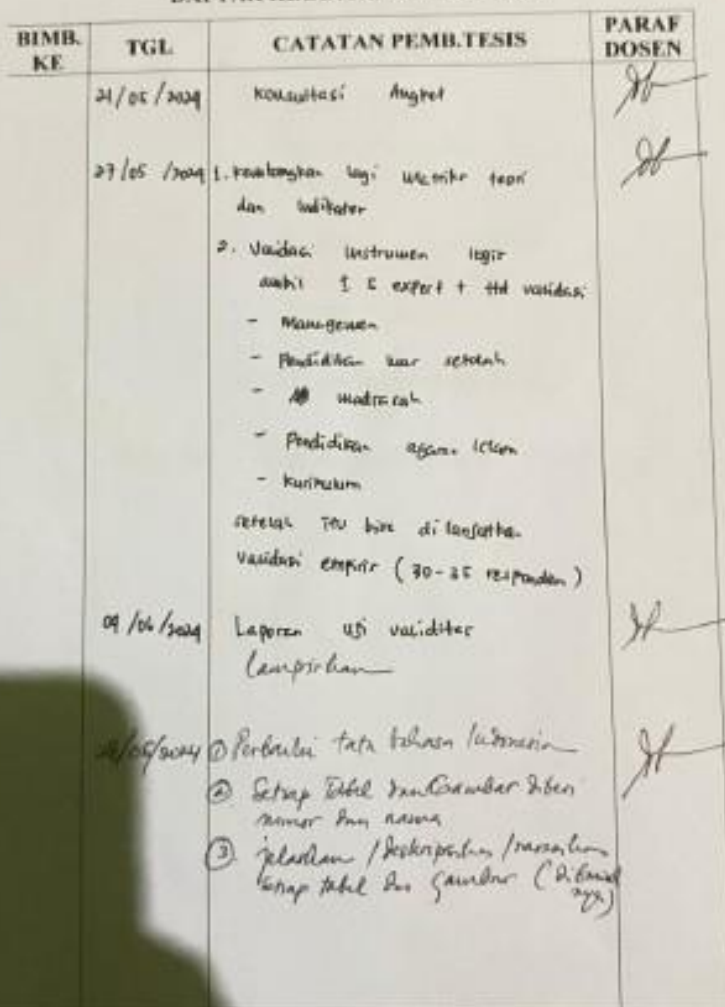 BIMB. KE TGL CATATAN PEMB.TESIS PARAF DOSEN
21/05/2024 Konsultasi Angket
27/05/2024 1. lagi teori
dan indikator
2. Validasi instrumen logis
ambil 5 expert + ttd validasi
- Manajemen
- Pendidikan luar sekolah
- madrasah
- Pendidikan agama Islam
- Kurikulum
setelah itu bisa di lanjutkan
validasi empiris (30-35 responden)
09/06/2024 Laporan uji validitas
lampirkan
/2024 ① Perbaiki tata bahasa Indonesia
② Setiap Tabel dan Gambar diberi
nomor dan nama
③ jelaskan / deskripsikan / narasikan
setiap tabel dan gambar